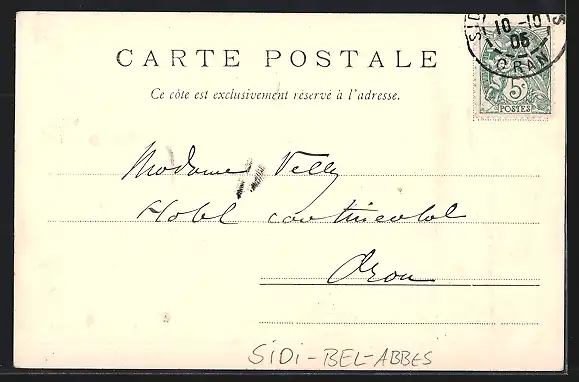 CARTE POSTALE
Ce côte est exclusivement réservé à l'adresse.
SIDI
10 -10
05
ORAN
5c
POSTES
Madame Velly
Hotel continental
Oran
SiDi-BEL-ABBES